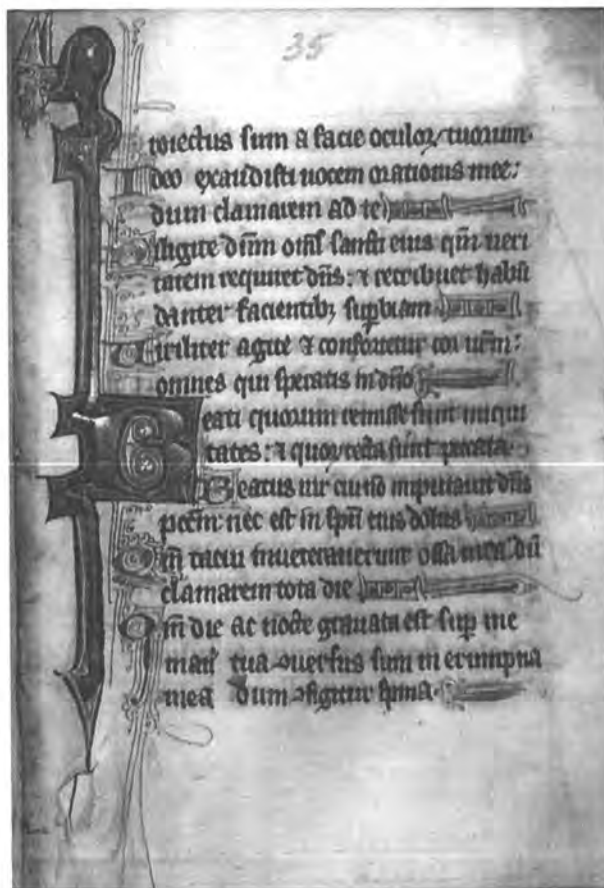 35
roiectus sum a facie oculoꝝ tuorum.
Ideo exaudisti uocem orationis mee:
dum clamarem ad te
Diligite dn̄m om̄s sancti eius qm̄ ueri
tatem requiret dn̄s: ⁊ retribuet habū
danter facientibꝫ suꝑbiam
Viriliter agite ⁊ confortetur cor ur̄m:
omnes qui speratis in dn̄o
Beati quorum remisse sunt iniqui
tates: ⁊ quoꝝ tecta sunt peccata.
Beatus uir cui nō imputauit dn̄s
pctm̄: nec est in spū eius dolus
Qm̄ tacui inueterauerunt ossa mea dū
clamarem tota die
Qm̄ die ac nocte grauata est suꝑ me
man⁹ tua ꝯuersus sum in erumpna
mea dum ꝯfigitur spina.